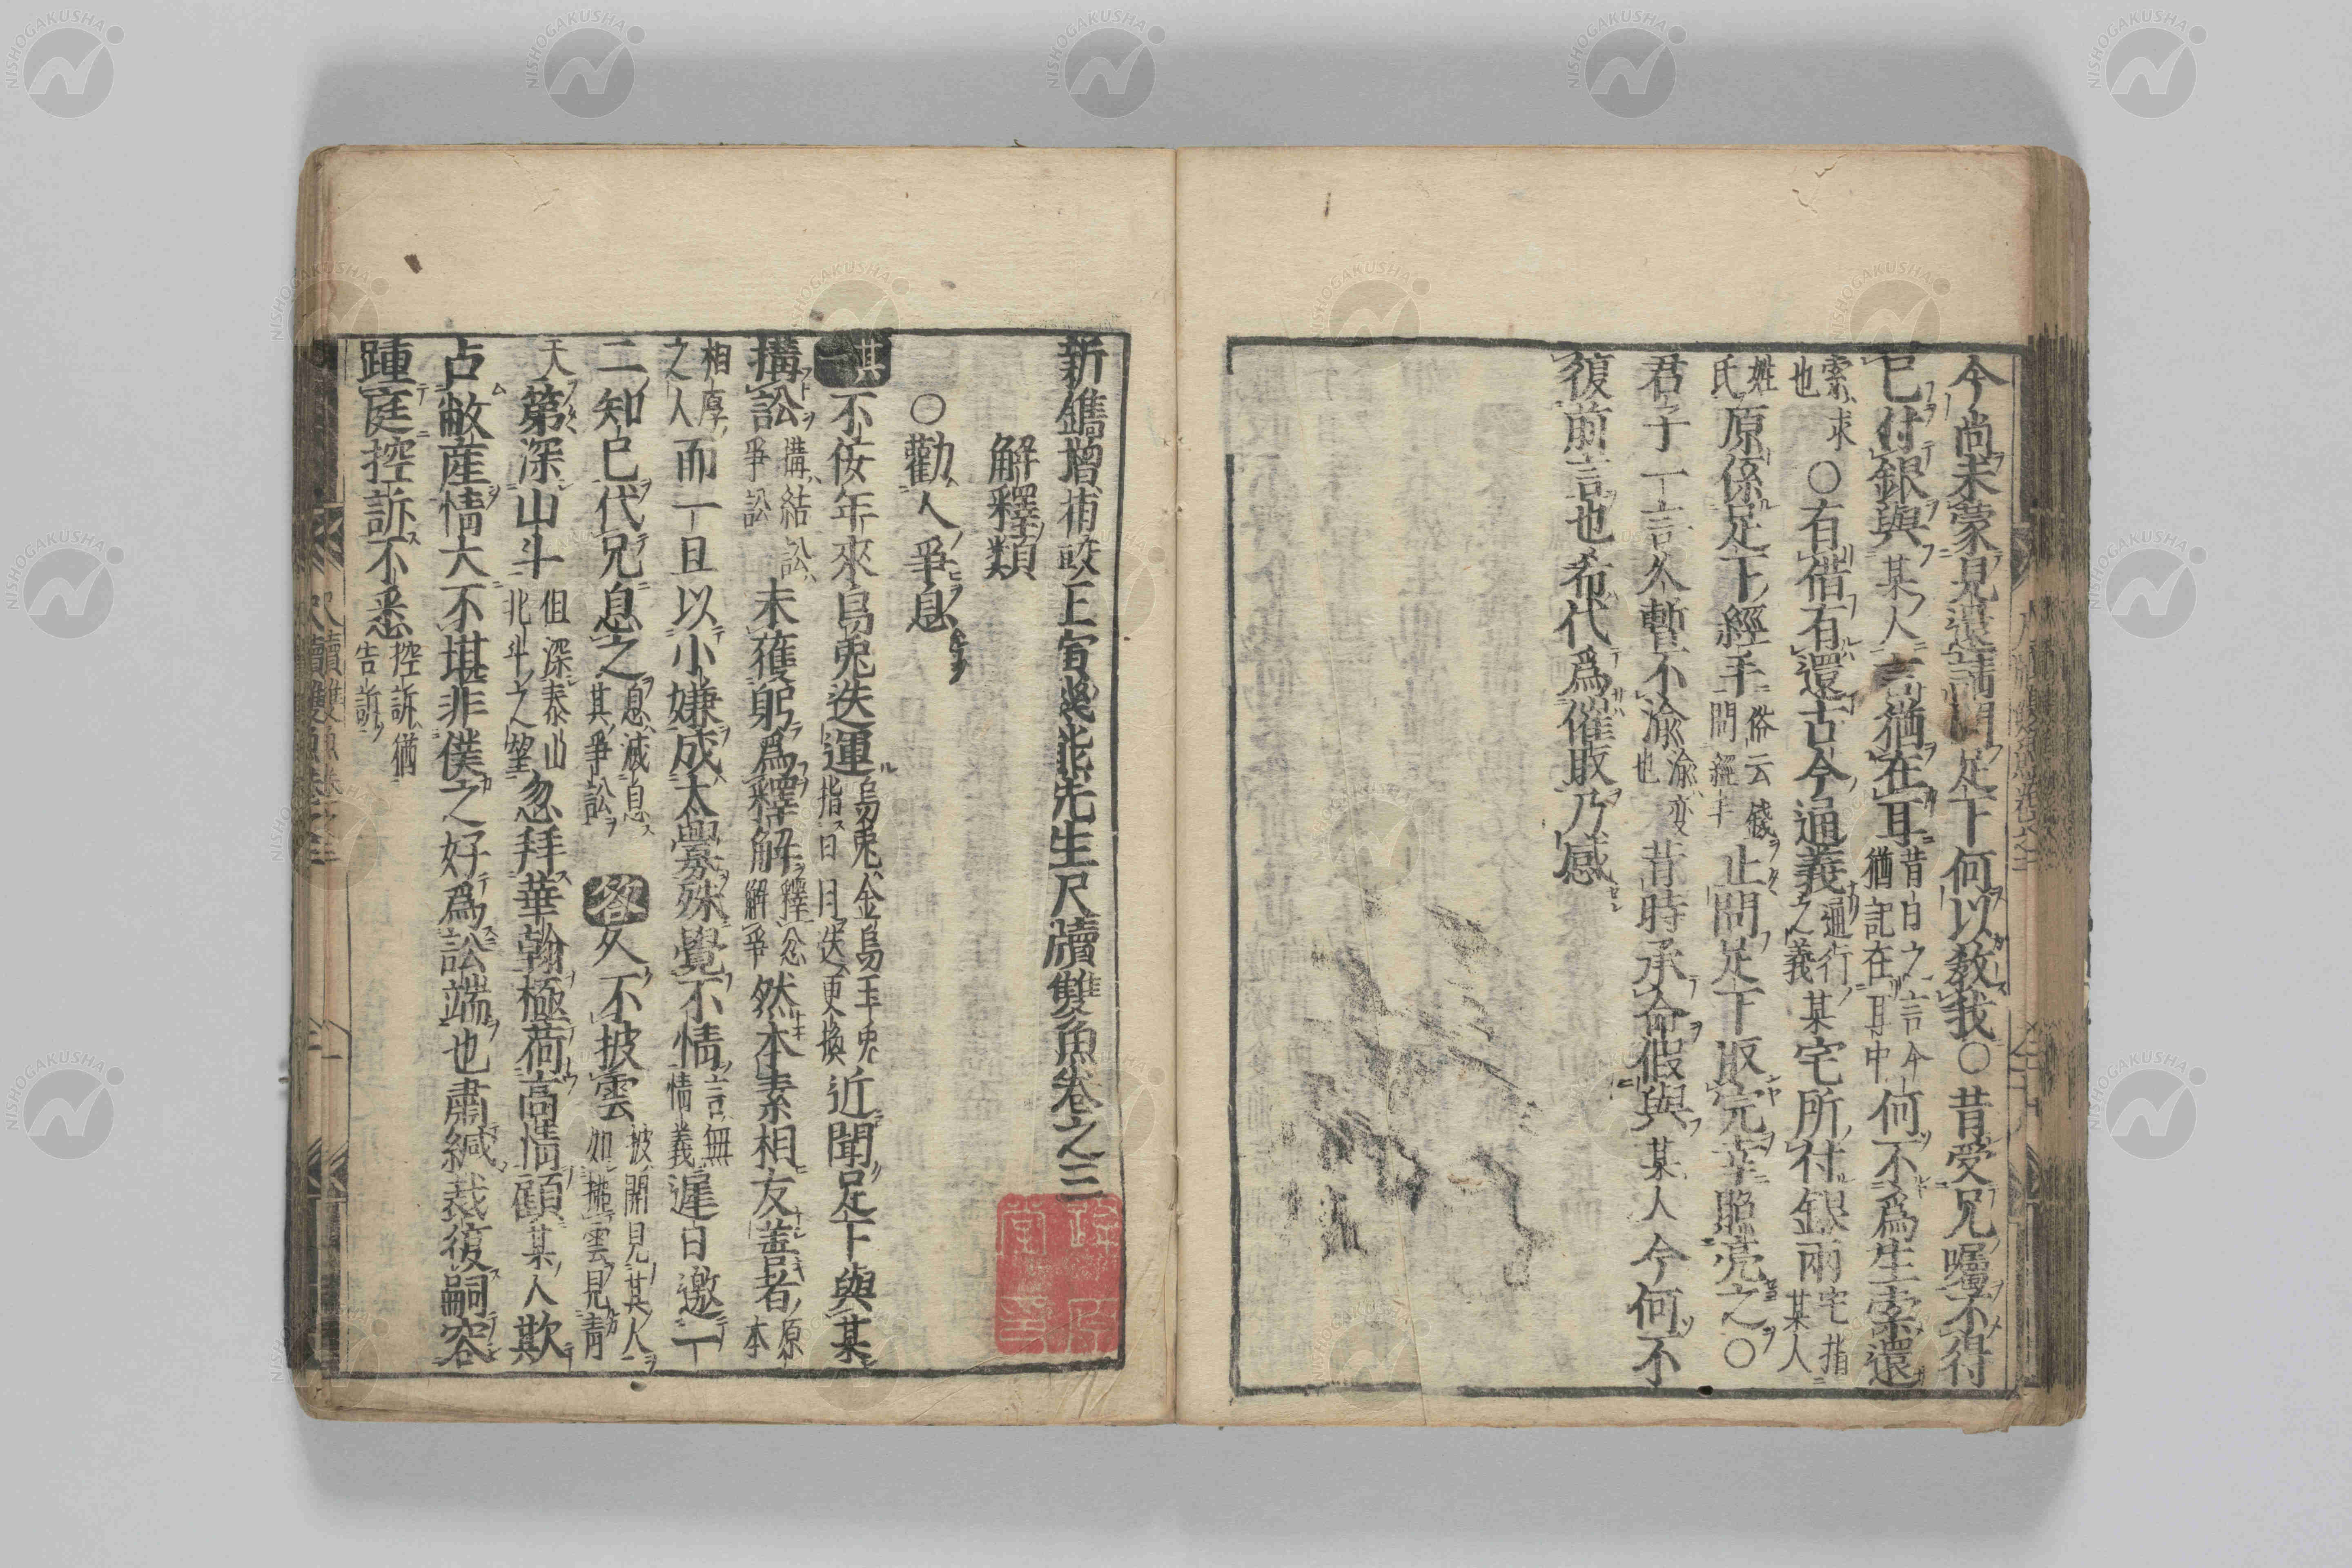 今尚未蒙見還請問足下何以教我○昔受兄囑不得
已付銀與某人言猶在耳昔日之言今猶記在耳中何不爲生索還
索求也○有借有還古今通義通行之義某宅所付銀兩宅指某人
姓氏原係足下經手俗云錢問經手止問足下取完幸照亮之○
君子一言久暫不渝渝変也昔時承命假與某人今何不
復前言也希代爲催取乃感
新鐫增補較正寅幾熊先生尺牘雙魚卷之三
解釋類
○勸人爭息
其一不佞年來烏兎迭運烏兎金烏玉兎指日月迭更換近聞足下與某
搆訟搆結訟爭訟未獲躬爲釋解釋忿解爭然本素相友善者原本
相厚之人而一旦以小嫌成太釁殊覺不情言無情義遲日邀一
二知已代兄息之息滅息其爭訟答久不披雲披開見其人如撥雲見青
天第深山斗但深泰山北斗之望忽拜華翰極荷高情顧某人欺
占敝産情大不堪非僕之好爲訟端也肅緘裁復嗣容
踵庭控訴不悉控訴猶告訴